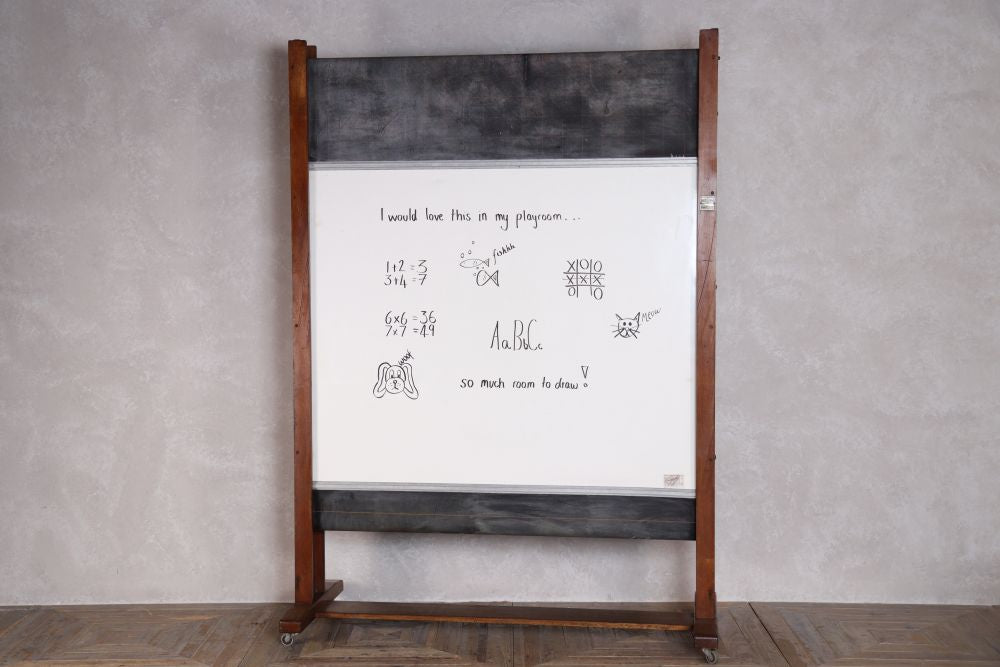 I would love this in my playroom...
fishhh
1+2=3
3+4=7
X O O
X X X
O O
6x6=36
7x7=49
Meow
AaBbCc
woof
so much room to draw!